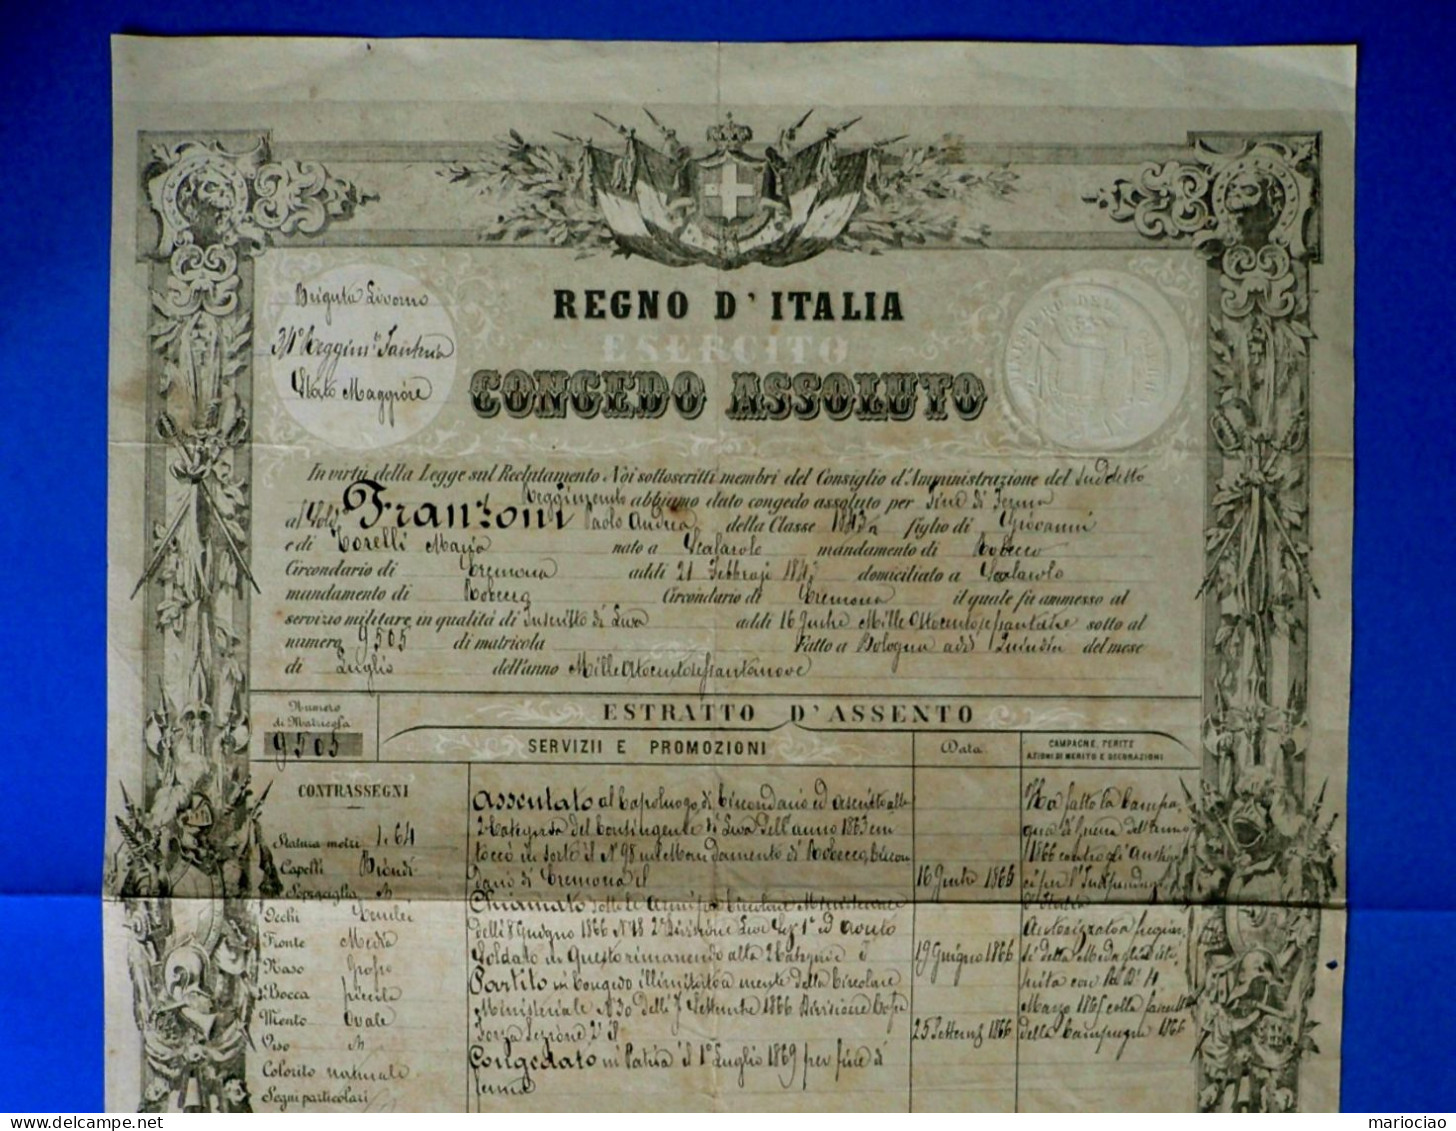 Brigata Livorno
34° Reggim.to Fanteria
Stato Maggiore
REGNO D'ITALIA
ESERCITO
CONGEDO ASSOLUTO
In virtù della Legge sul Reclutamento Noi sottoscritti membri del Consiglio d'Amministrazione del Sudetto
Reggimento abbiamo dato congedo assoluto per Fine di Ferma
al Sold. Franzoni Paolo Andrea della Classe 1843 figlio di Giovanni
e di Torelli Maria nato a Scalarolo mandamento di Robecco
Circondario di Cremona addì 21 Febbrajo 1843 domiciliato a Scolarolo
mandamento di Robecco Circondario di Cremona il quale fu ammesso al
servizio militare in qualità di Inscritto di Leva addì 16 Mille Ottocento sotto al
numero 9505 di matricola Fatto a Bologna addì Quindici del mese
di Luglio dell'anno Mille Ottocentosessantanove
Numero
di Matricola
9505
ESTRATTO D'ASSENTO
SERVIZII E PROMOZIONI
Data
CAMPAGNE, FERITE
AZIONI DI MERITO E DECORAZIONI
CONTRASSEGNI
Statura metri 1.64
Capelli Biondi
Sopracciglia
Occhi
Fronte Media
Naso Grosso
Bocca piccola
Mento Ovale
Viso
Colorito naturale
Segni particolari
Assentato al Capoluogo di Circondario ed ascritto alla
2a Categoria del Contingente di Leva dell'anno 1863 cui
toccò in sorte il N° 98 nel Mandamento di Robecco, Circon
dario di Cremona il
Chiamato sotto le Armi per Circolare Ministeriale
delli 8 Giugno 1866 N° 18 Divisione Leve Sez 1a ed
Soldato in Questo rimanendo alla 2a Categoria
Partito in Congedo illimitato a mente della Circolare
Ministeriale N° 30 delli 7 Settembre 1866 Divisione
Forza Sezione 2a il
Congedato in Patria il 1° Luglio 1869 per fine di
ferma
19 Giugno 1866
25 Settemb 1866
Ha fatto la Campa
gna di Guerra dell'anno
1866 contro gli Austria
ci per l'Indipendenza
d'Italia
Autorizzato a fregiar
si della Medaglia isti
tuita con R° D° 4
Marzo 1865 colla fascetta
della Campagna 1866
mariociao